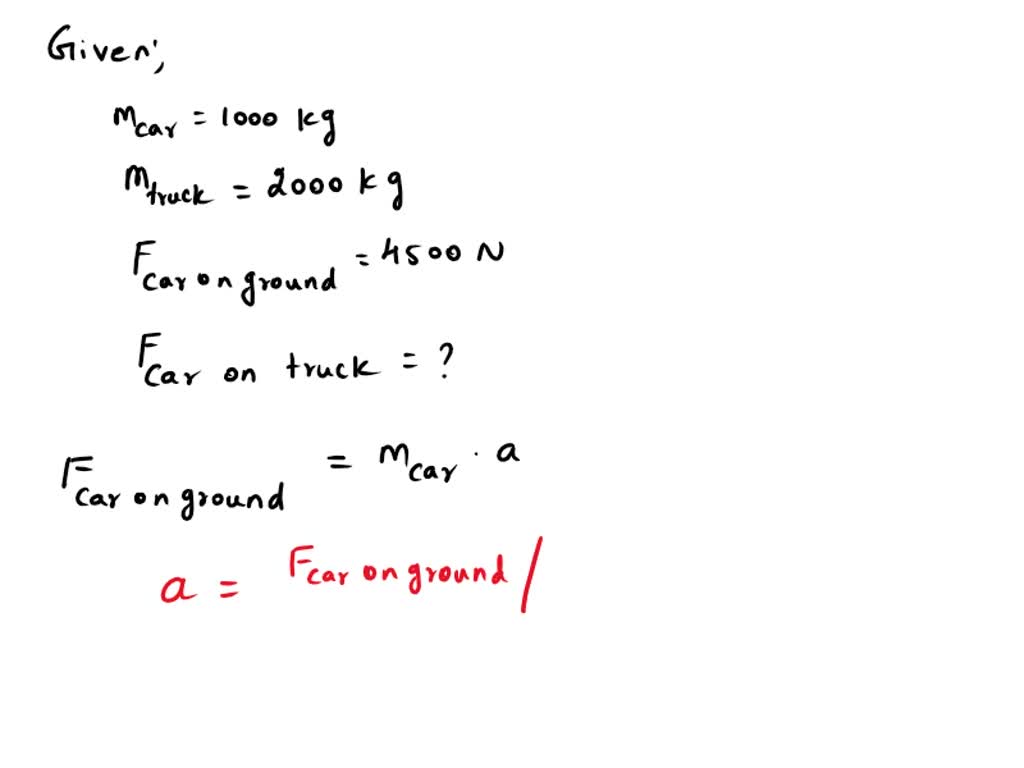 Given;
m car = 1000 kg
m truck = 2000 kg
F car on ground = 4500 N
F car on truck = ?
F car on ground = m car · a
a = F car on ground /